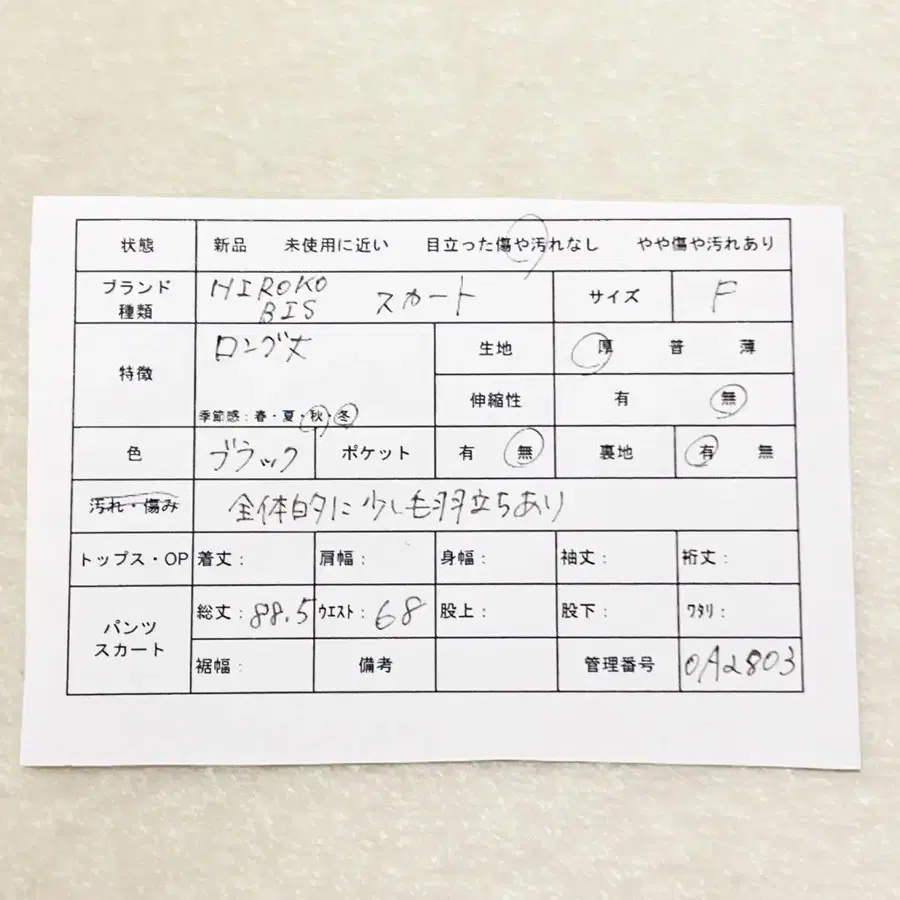 状態 新品 未使用に近い 目立った傷や汚れなし やや傷や汚れあり
ブランド 種類 HIROKO BIS スカート サイズ F
特徴 ロング丈 生地 厚 普 薄
季節感：春・夏・秋・冬 伸縮性 有 無
色 ブラック ポケット 有 無 裏地 有 無
汚れ・傷み 全体的に少し毛羽立ちあり
トップス・OP 着丈： 肩幅： 身幅： 袖丈： 裄丈：
パンツ スカート 総丈：88.5 ウエスト：68 股上： 股下： ワタリ：
裾幅： 備考 管理番号 0A2803